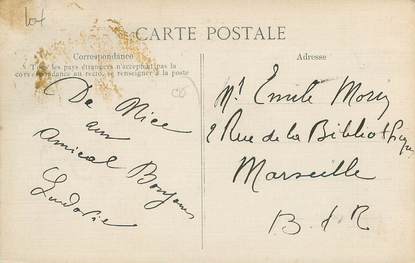 CARTE POSTALE
Correspondance
Tous les pays étrangers n'acceptant pas la
correspondance au recto, se renseigner à la poste
Adresse
De Nice
un
amical Bonjour
Ludovic
Mr Emile
2 Rue de la Bibliothèque
Marseille
B d R